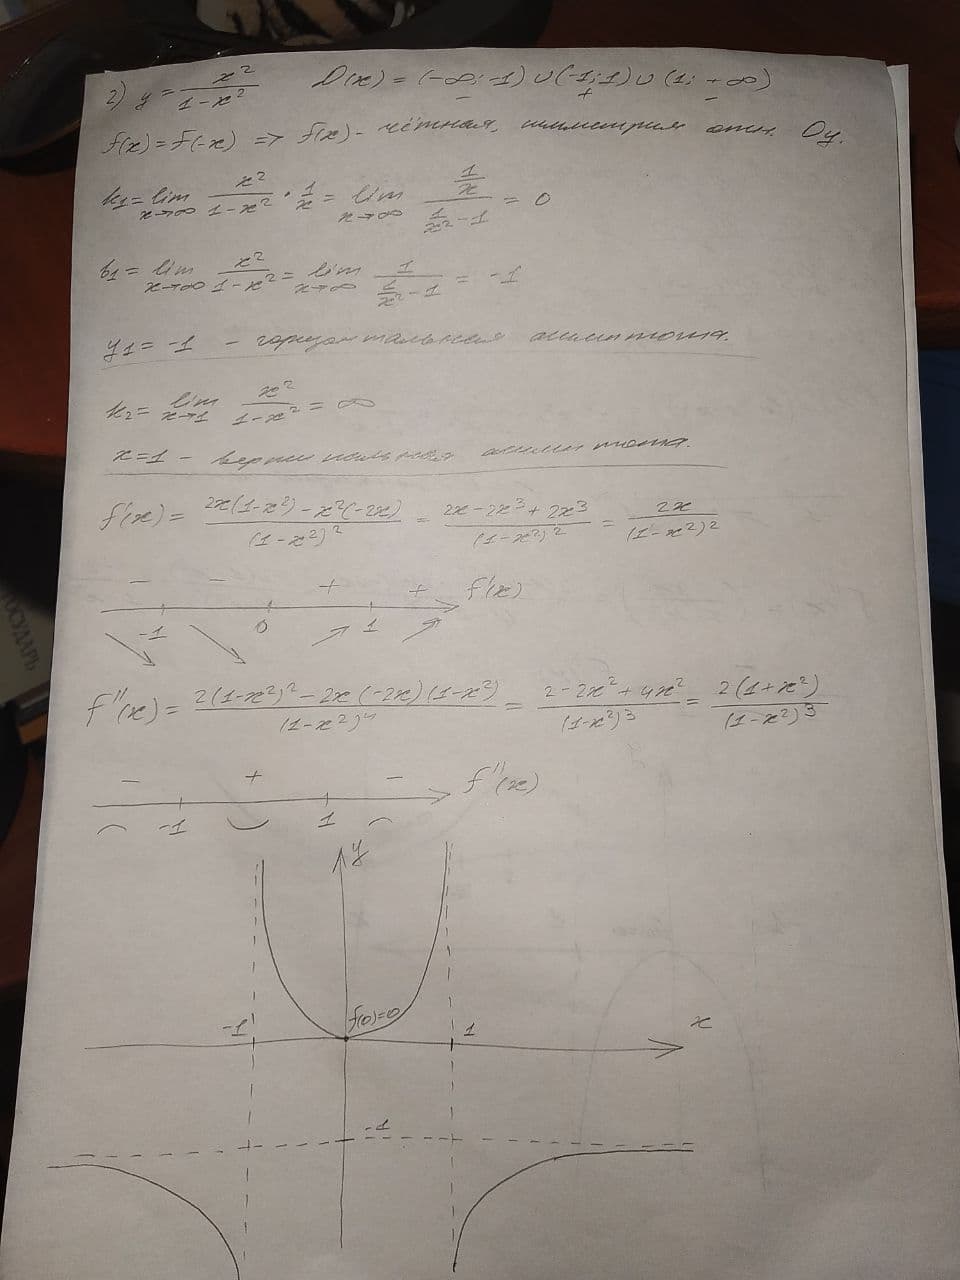 2) y = x²/(1-x²) D(x) = (-∞; -1) ∪ (-1; 1) ∪ (1; +∞)
- + -
f(x) = f(-x) => f(x) - чётная, симметрия отн. Oy.
k₁ = lim x→∞ x²/(1-x²) · 1/x = lim x→∞ (1/x)/(1/x² - 1) = 0
b₁ = lim x→∞ x²/(1-x²) = lim x→∞ 1/(1/x² - 1) = -1
y₁ = -1 - горизонтальная асимптота.
k₂ = lim x→1 x²/(1-x²) = ∞
x=1 - вертикальная асимптота.
f'(x) = (2x(1-x²) - x²(-2x))/(1-x²)² = (2x - 2x³ + 2x³)/(1-x²)² = 2x/(1-x²)²
- - + + f'(x)
-1 0 1
f''(x) = (2(1-x²)² - 2x(-2x)(1-x²))/(1-x²)⁴ = (2 - 2x² + 4x²)/(1-x²)³ = 2(1+x²)/(1-x²)³
- + - f''(x)
-1 1
y
f(0)=0
-1 1 x
-1
ГОСУДАРЬ